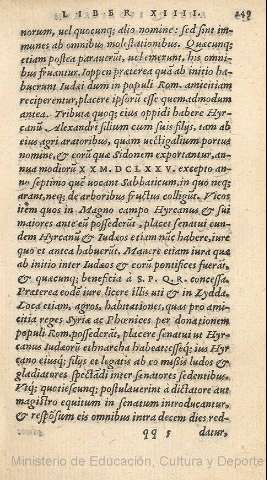 LIBER XIIII.
norum, uel quocunq; alio nomine: sed sint im-
munes ab omnibus molestationibus. Quæcunq;
etiam postea parauerũt, uel emerunt, his omni-
bus fruantur. Joppen præterea quã ab initio ha-
buerunt Iudæi dum in populi Rom. amicitiam
reciperentur, placere ipsorũ esse quemadmodum
antea. Tributa quoq; eius oppidi habere Hyr-
canũ Alexandri filium cum suis filijs, tam ab
eius agri aratoribus, quam uectigalium portus
nomine, & eorũ quæ Sidonem exportantur, an-
nua modiorũ XXM. DCLXXV. excepto an-
no septimo quē uocant Sabbaticum, in quo neq;
arant, neq; de arboribus fructus colligũt. Vicos
itē quos in Magno campo Hyrcanus & sui
maiores ante eũ possederũt, placet senatui eun-
dem Hyrcanũ & Iudæos etiam nũc habere, iure
quo et antea habuerũt. Manere etiam iura quæ
ab initio inter Iudæos & eorũ pontifices fuerãt,
& quæcunq; beneficia à S. P. Q. R. concessa.
Præterea eodē iure licere illis uti & in Zydda.
Loca etiam, agros, habitationes, quæ pro ami-
citia reges Syriæ ac Phœnices per donationem
populi Rom. possederãt, placere senatui ut Hyr-
canus Iudæorũ ethnarcha habeat: esseq; ius Hyr-
cano eiusq; filijs et legatis ab eo missis ludos &
gladiatores spectãdi inter senatores sedentibus.
Vtq; quotiescunq; postulauerint à dictatore aut
magistro equitum in senatum introducantur,
& respõsum eis omnibus intra decem dies red-
qq 5
datur,
Ministerio de Educación, Cultura y Deporte